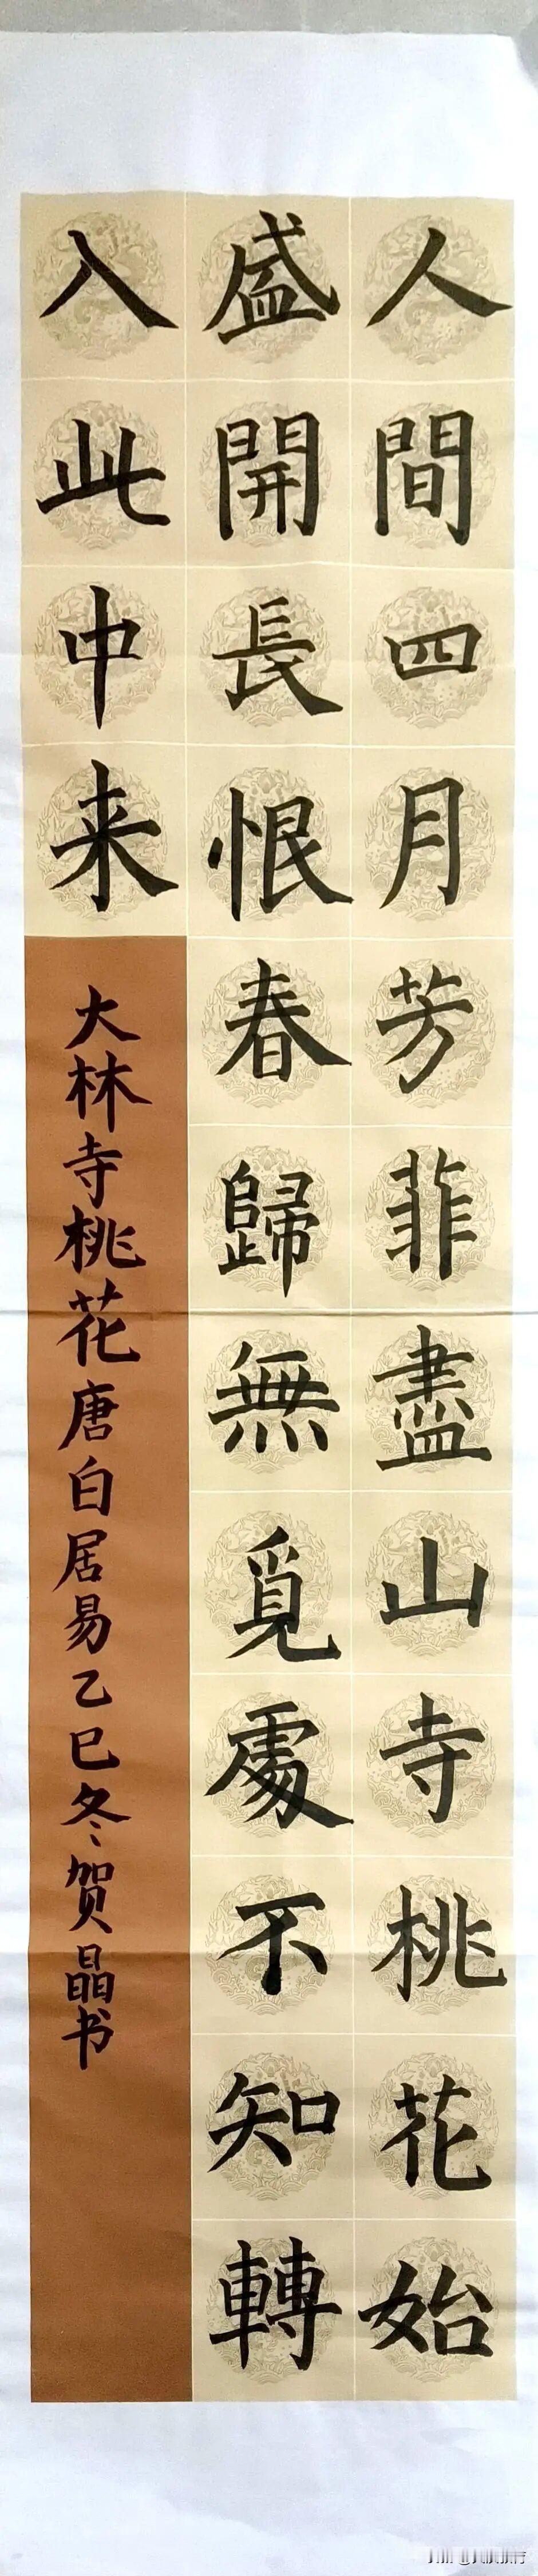 人間四月芳菲盡山寺桃花始
盛開長恨春歸無覓處不知轉
入此中来
大林寺桃花唐白居易乙巳冬贺晶书